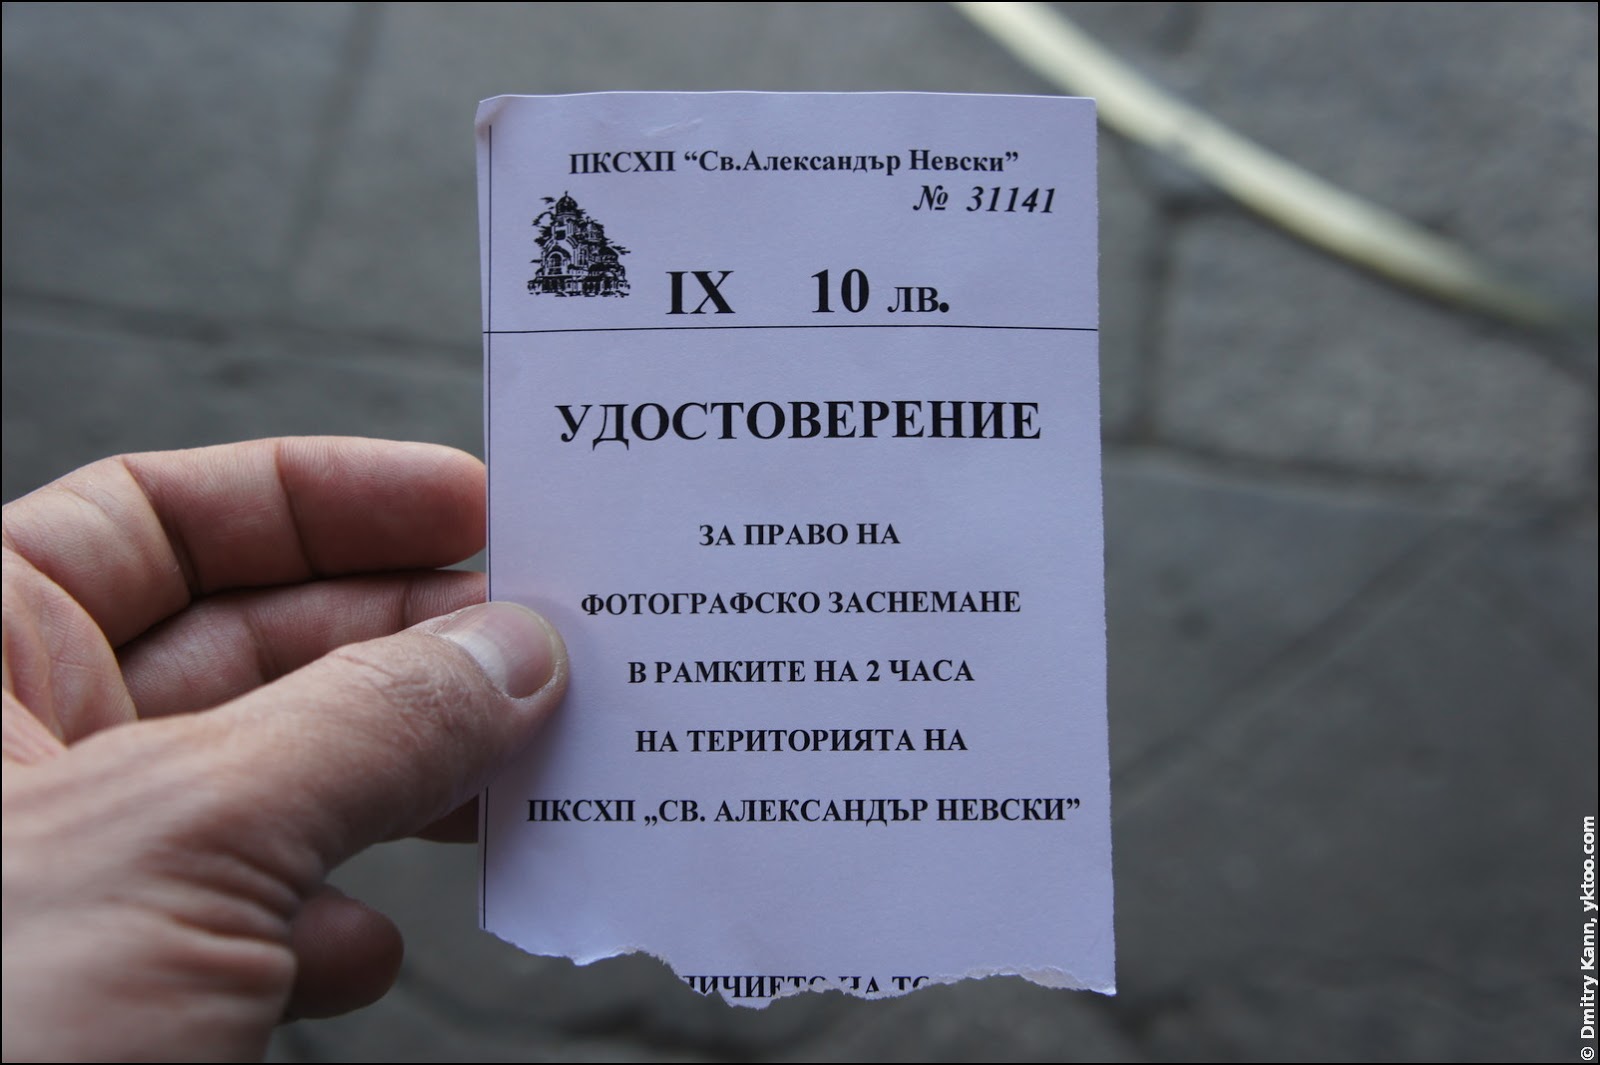 ПКСХП “Св.Александър Невски”
№ 31141
IX 10 лв.
УДОСТОВЕРЕНИЕ
ЗА ПРАВО НА
ФОТОГРАФСКО ЗАСНЕМАНЕ
В РАМКИТЕ НА 2 ЧАСА
НА ТЕРИТОРИЯТА НА
ПКСХП „СВ. АЛЕКСАНДЪР НЕВСКИ”
© Dmitry Kann, yktoo.com